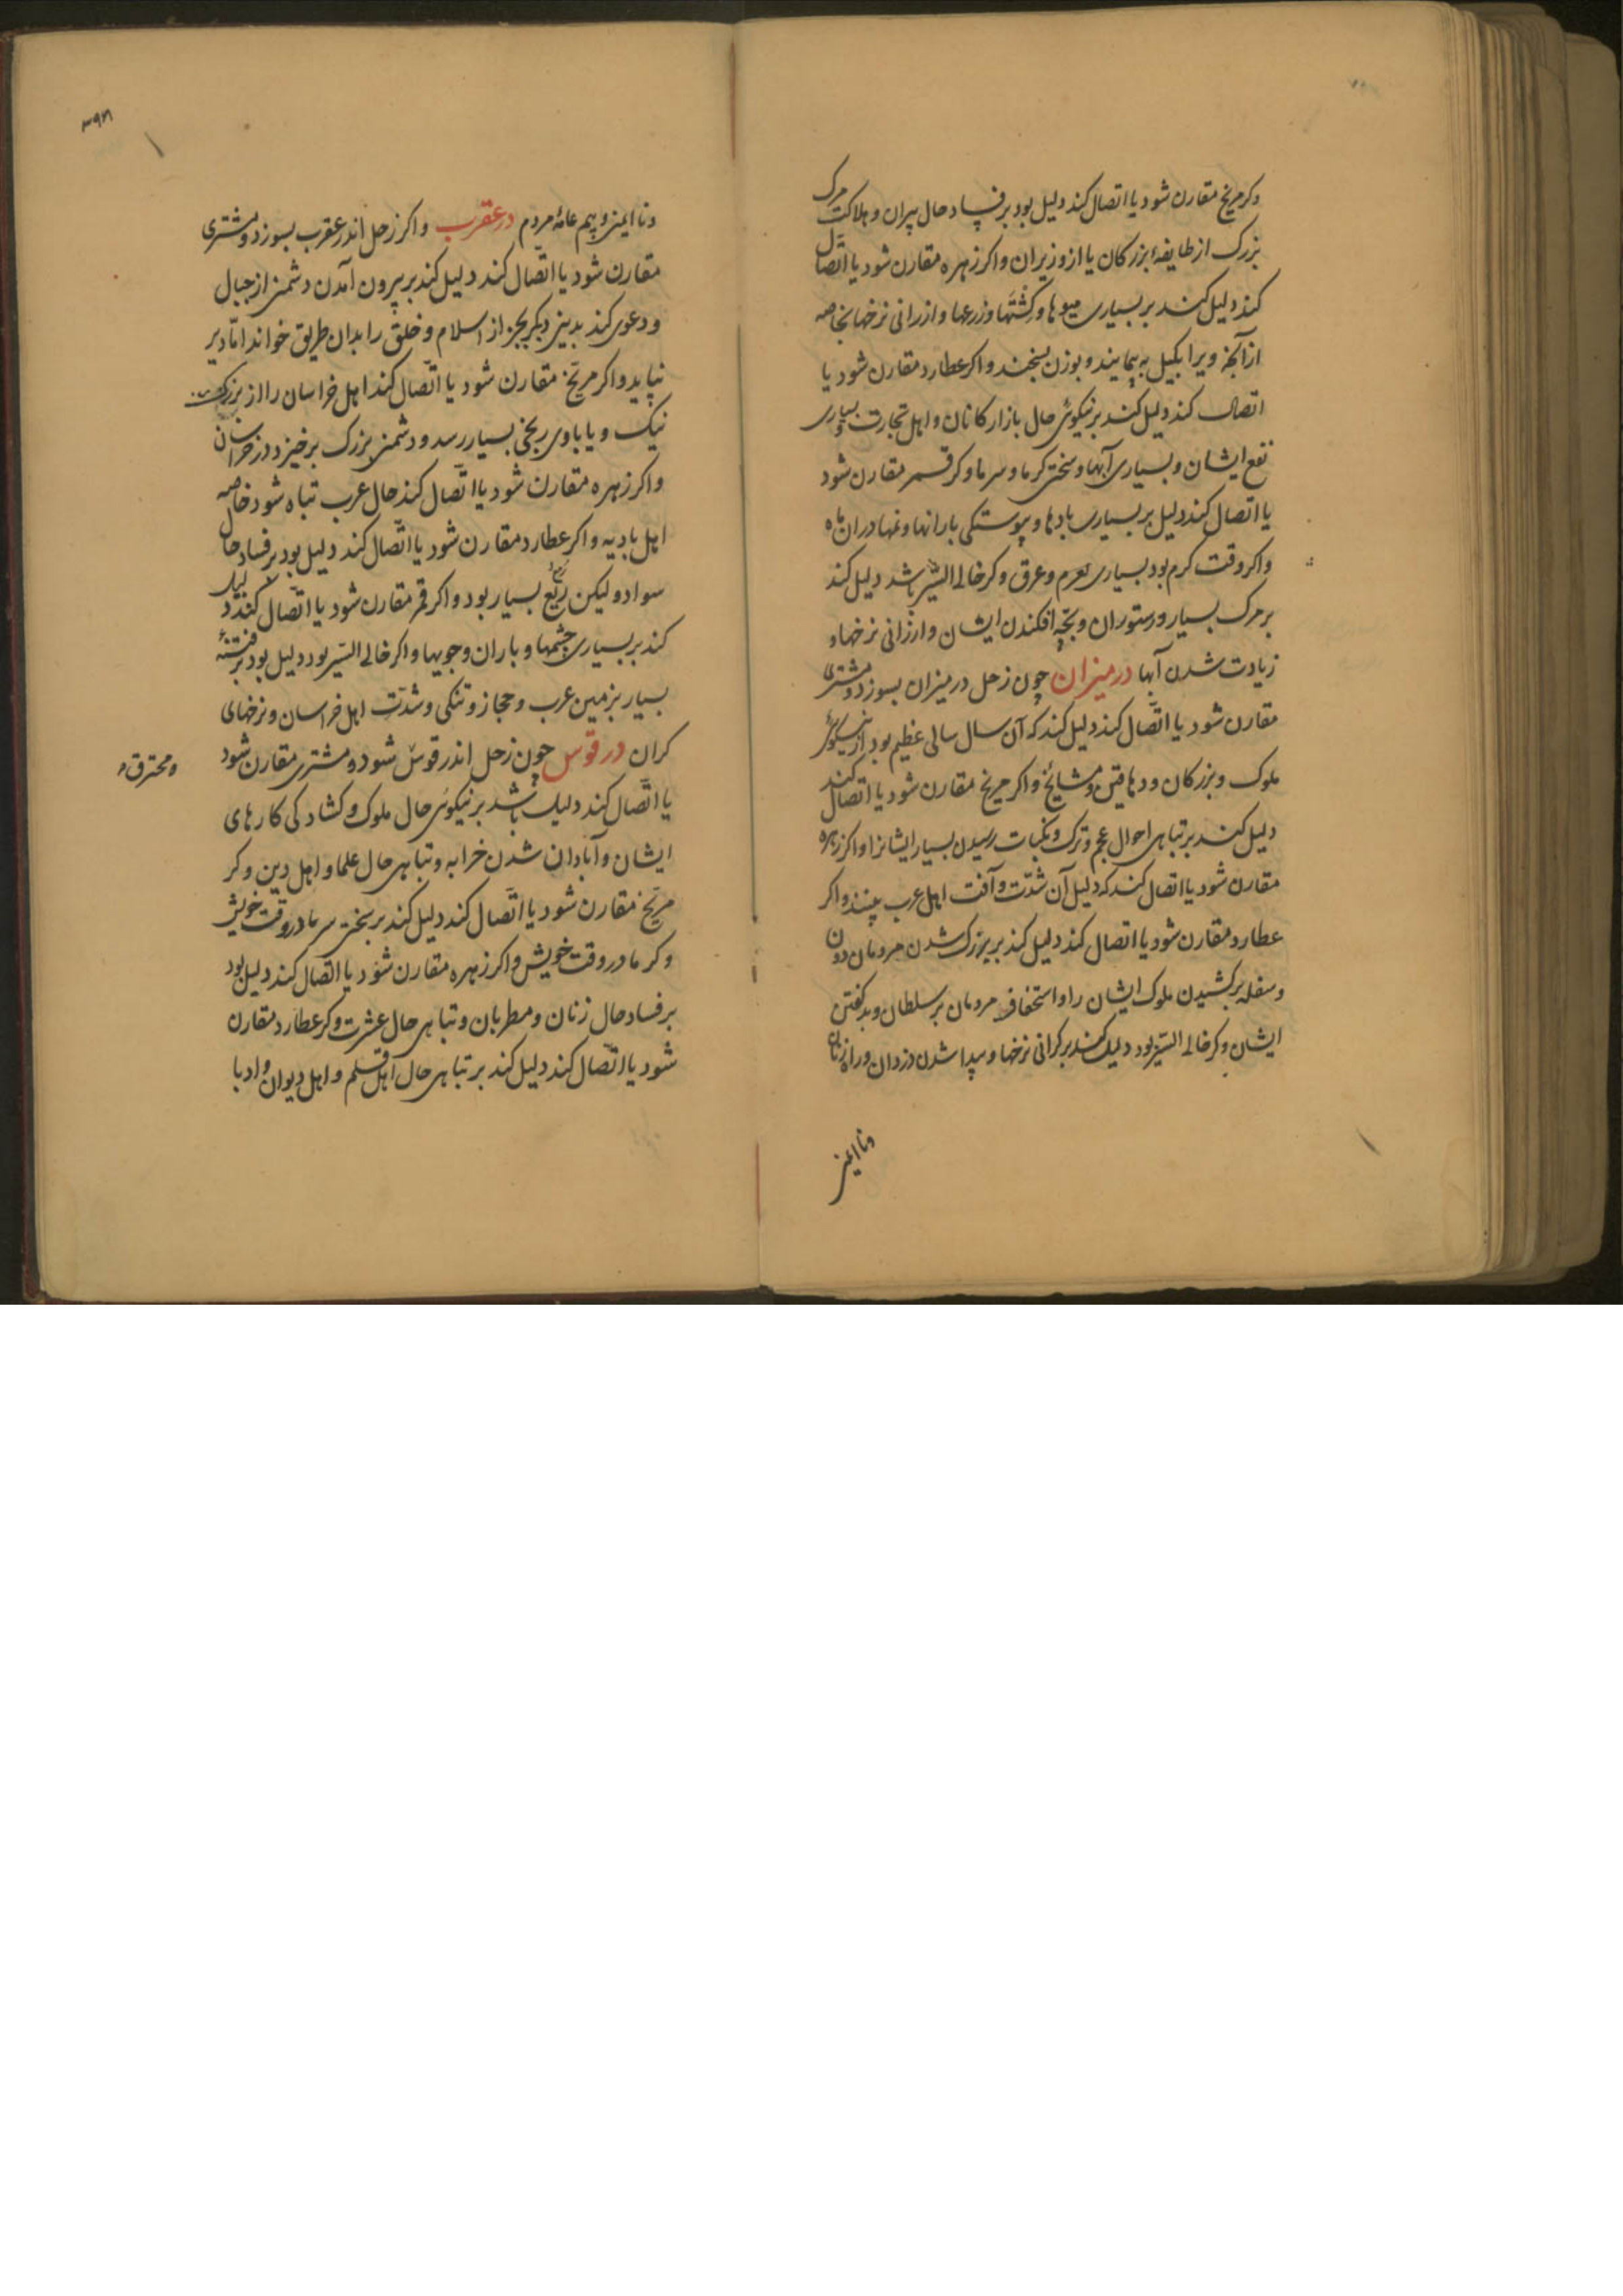 وکر مریخ مقارن شود یا اتصال کند دلیل بود بر فساد حال پیران و هلاکت مرک
بزرک از طایفهٔ بزرکان یا از وزیران و اکر زهره مقارن شود یا اتّصال
کند دلیل کند بر بسیاری میوها و کشتها و زرعها و ازرانی نرخها بخاصه
از آنچه ویرا بکیل به پیمایند و بوزن بسنجند و اکر عطارد مقارن شود یا
اتصال کند دلیل کند بر نیکوئی حال بازارکانان و اهل تجارت و بسیاری
نفع ایشان و بسیاری آبها و سختی کرما و سرما و کر قمر مقارن شود
یا اتصال کند دلیل بر بسیاری بادها و پیوستکی بارانها و نمها در ان ماه
و اکر وقت کرم بود بسیاری و عرق و کر خالی السّیر باشد دلیل کند
بر مرک بسیار و رستوران و بچّه افکندن ایشان و ارزانی نرخها و
زیادت شدن آبها در میزان چون زحل در میزان بسوزد و مشتری
مقارن شود یا اتّصال کند دلیل کند که آن سال سالی عظیم بود از نیکوئی
ملوک و بزرکان و دهاقین و مشایخ و اکر مریخ مقارن شود یا اتصال کند
دلیل کند بر تباهی احوال عجم و ترک و نکبات رسیدن بسیار ایشانرا و اکر زهره
مقارن شود یا اتصال کند که دلیل آن شدّت و آفت اهل عرب بینند و اکر
عطارد مقارن شود یا اتصال کند دلیل کند بر بزرک شدن مردمان دون
و سفله برکشیدن ملوک ایشان را و استخفاف مردمان بر سلطان و بد کفتن
ایشان و کر خالی السّیر بود دلیل کند بر کرانی نرخها و پیدا شدن دزدان و راه زنان
و نا ایمنی
۳۹۸
و نا ایمنی و بیم عامهٔ مردم در عقرب و اکر زحل اندر عقرب بسوزد و مشتری
مقارن شود یا اتّصال کند دلیل کند بر بیرون آمدن دشمنی از جبال
و دعوی کند بدینی دیکر بجز از اسلام و خلق را بدان طریق خواند امّا دیر
نپاید و اکر مریّخ مقارن شود یا اتّصال کند اهل خراسان را از بزرکی
نیک و یا باوی رنجی بسیار رسد و دشمنی بزرک برخیزد در خراسان
و اکر زهره مقارن شود یا اتّصال کند حال عرب تباه شود خاصه
اهل بادیه و اکر عطارد مقارن شود یا اتّصال کند دلیل بود بر فساد حال
سواد و لیکن ریع بسیار بود و اکر قمر مقارن شود یا اتّصال کند دلیل
کند بر بسیاری چشمها و باران و جویها و اکر خالی السّیر بود دلیل بود بر فتنهٔ
بسیار بزمین عرب و حجاز و تنکی و شدّت اهل خراسان و نرخهای
کران در قوس چون زحل اندر قوس شود و مشتری مقارن شود
و محترق
یا اتّصال کند دلیل باشد بر نیکوئی حال ملوک و کشادکی کارهای
ایشان و آبادان شدن خرابه و تباهی حال علما و اهل دین و کر
مریّخ مقارن شود یا اتّصال کند دلیل کند بر سختی سرما در وقت خویش
و کرما در وقت خویش و اکر زهره مقارن شود یا اتّصال کند دلیل بود
بر فساد حال زنان و مطربان و تباهی حال عشرت و کر عطارد مقارن
شود یا اتّصال کند دلیل کند بر تباهی حال اهل قلم و اهل دیوان و ادبا